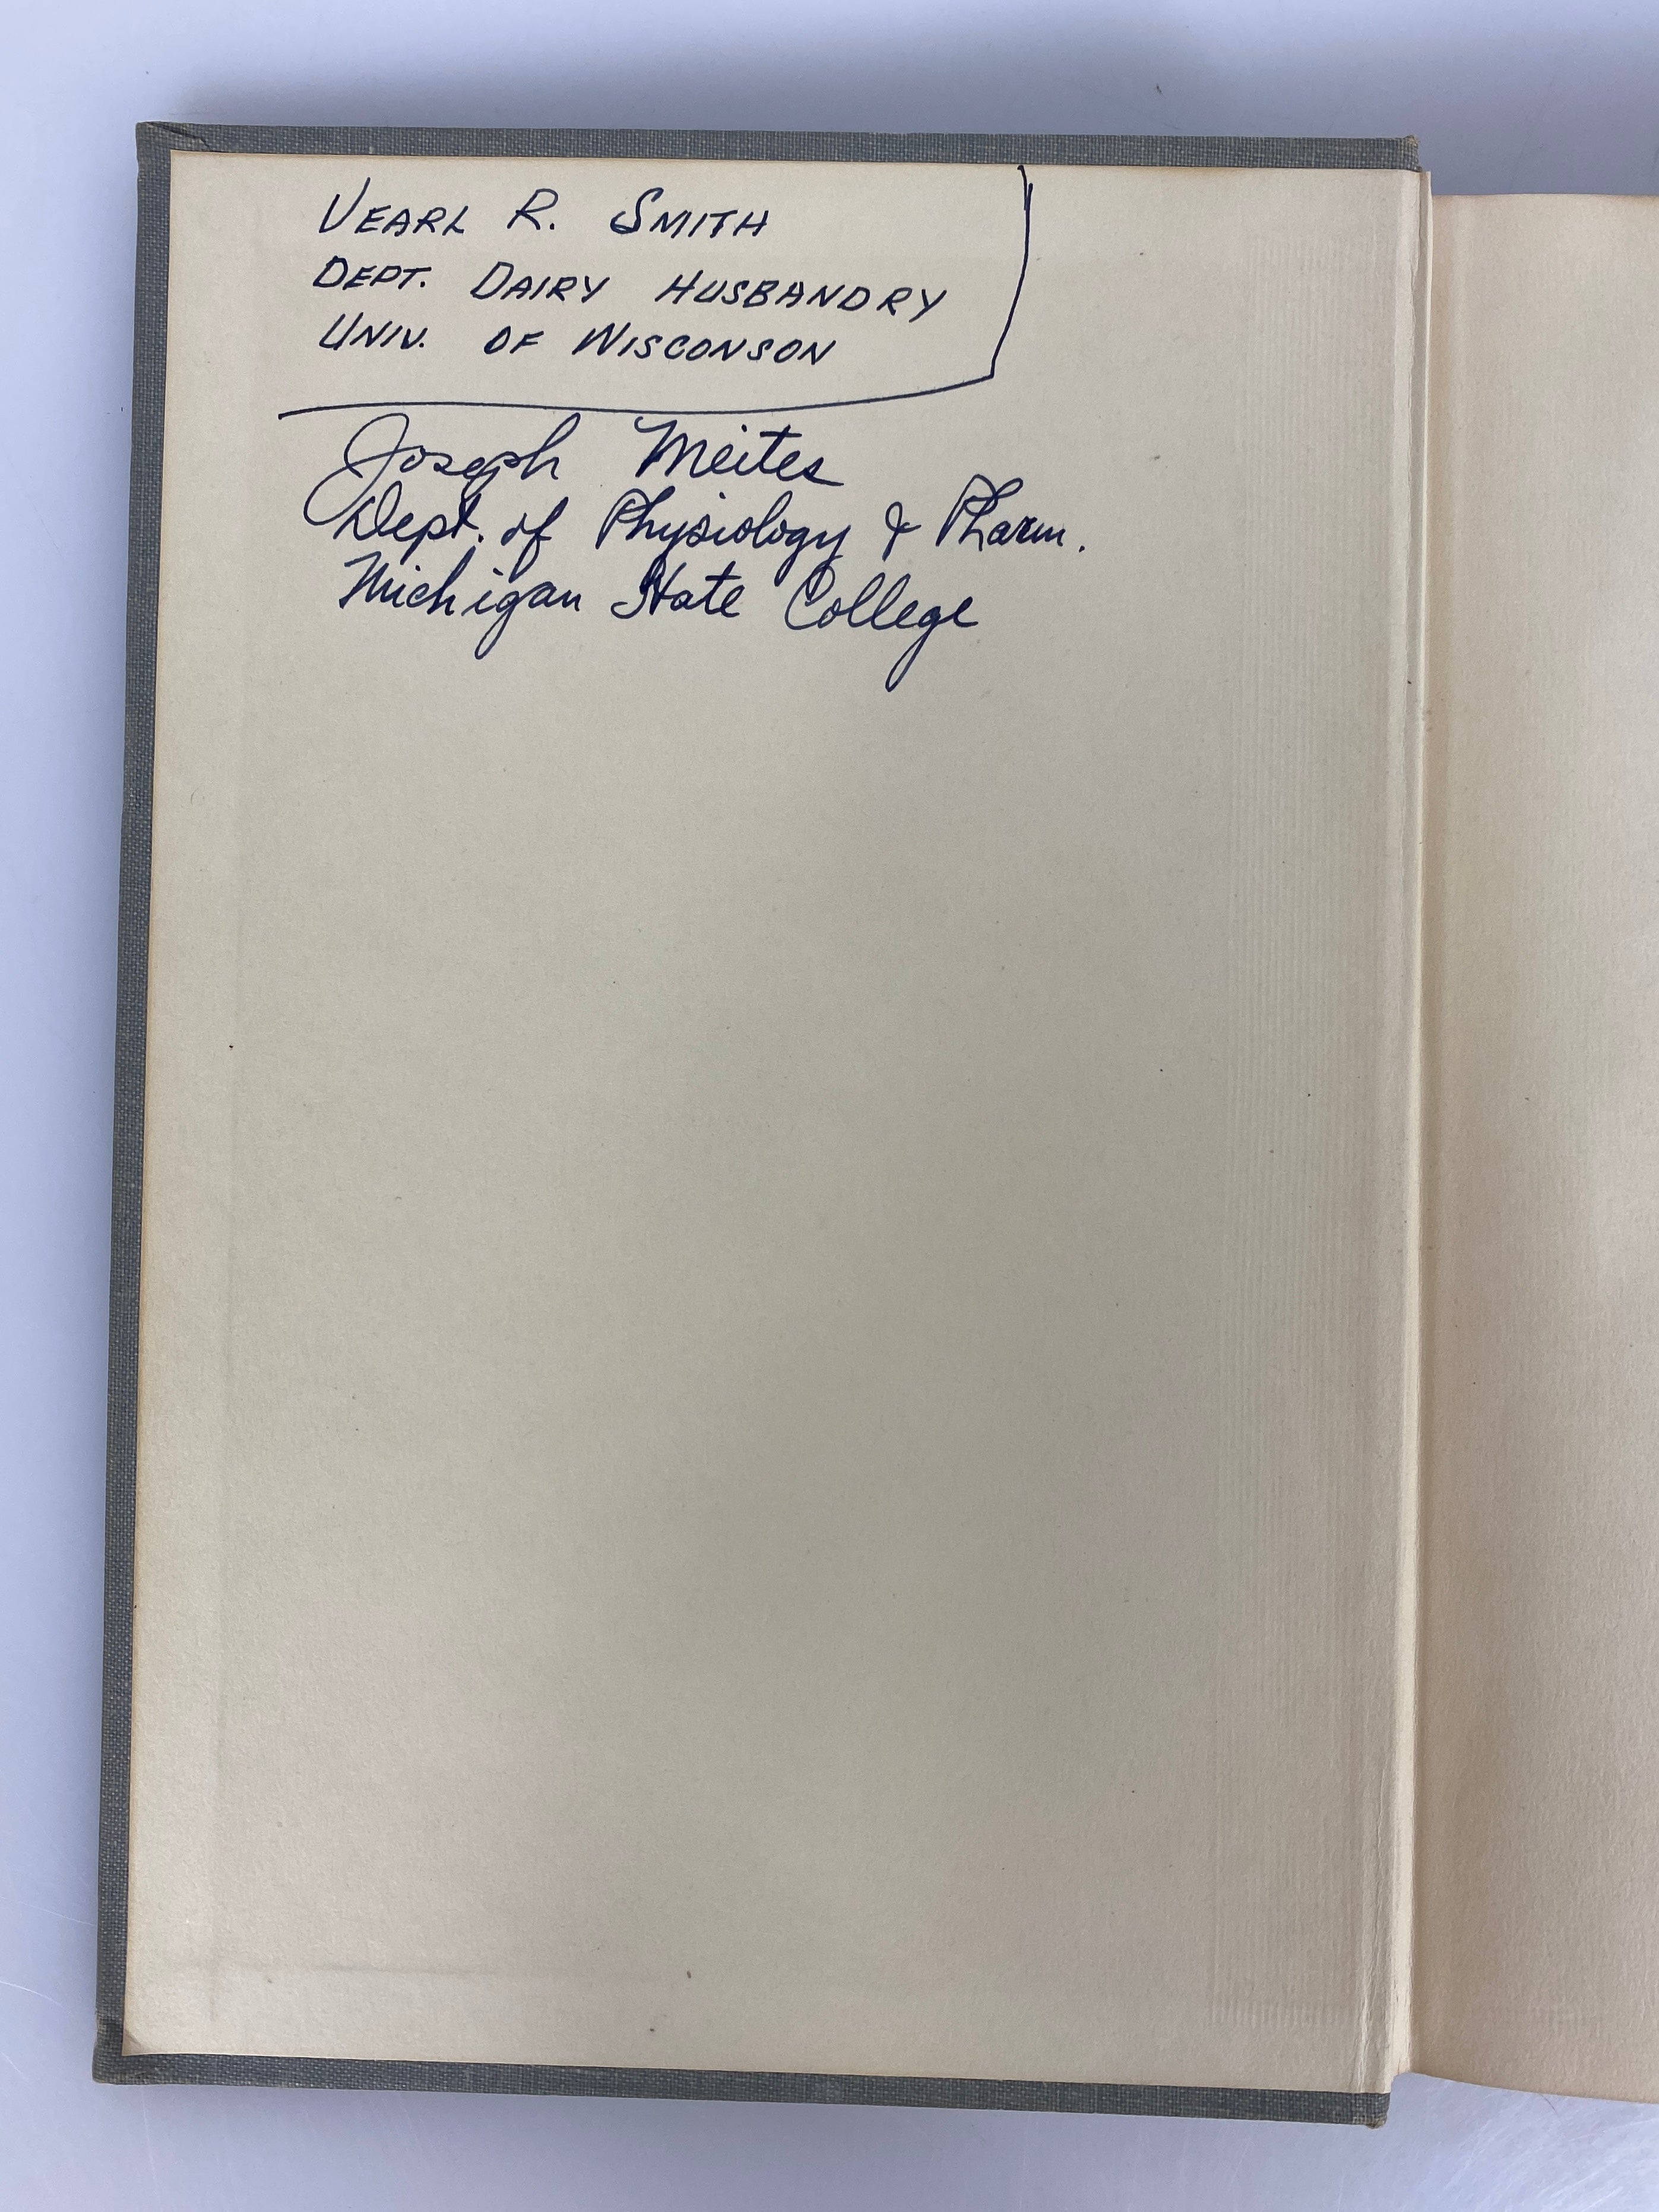 VEARL R. SMITH
DEPT. DAIRY HUSBANDRY
UNIV. OF WISCONSON
Joseph Meites
Dept. of Physiology & Pharm.
Michigan State College